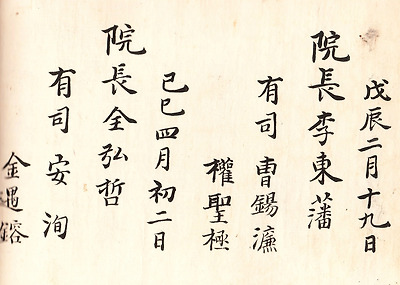 戊辰二月十九日
院長李東藩
有司曺錫濂
權聖極
己巳四月初二日
院長全弘哲
有司安洵
金遇鎔